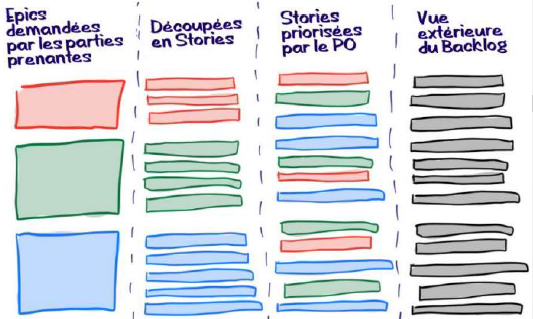 Epics
demandées
par les parties
prenantes
Découpées
en Stories
Stories
priorisées
par le PO
Vue
extérieure
du Backlog